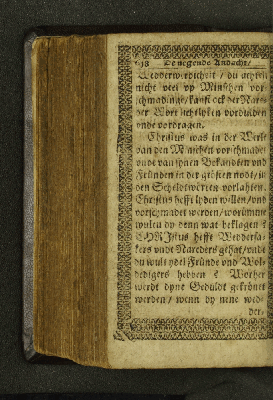 18 De negende Andacht/
Wedderwerdicheit / du achtest
nicht veel vp Minschen vor-
schmadinge/ kanst ock der Narr-
der Wort lichtlyken vordulden
vnde vordragen.
Christus was in der Werlt
van den Minschen vorschmadet
vnde van synen Bekanden vnd
Fründen in der grösten noot/ in
den Scheltworten vorlaten.
Christus hefft lyden willen/ vnd
vorschmadet werden/ worümme
wultu dy denn wat beklagen ?
CHRIstus hefft Weddersa-
kers vnde gehat/ vnde
du wult ydel Fründe vnd Wol-
dedigers hebben ? Worher
werdt dyne Gedüldt gekrönet
werden / wenn dy nene wed-
der-